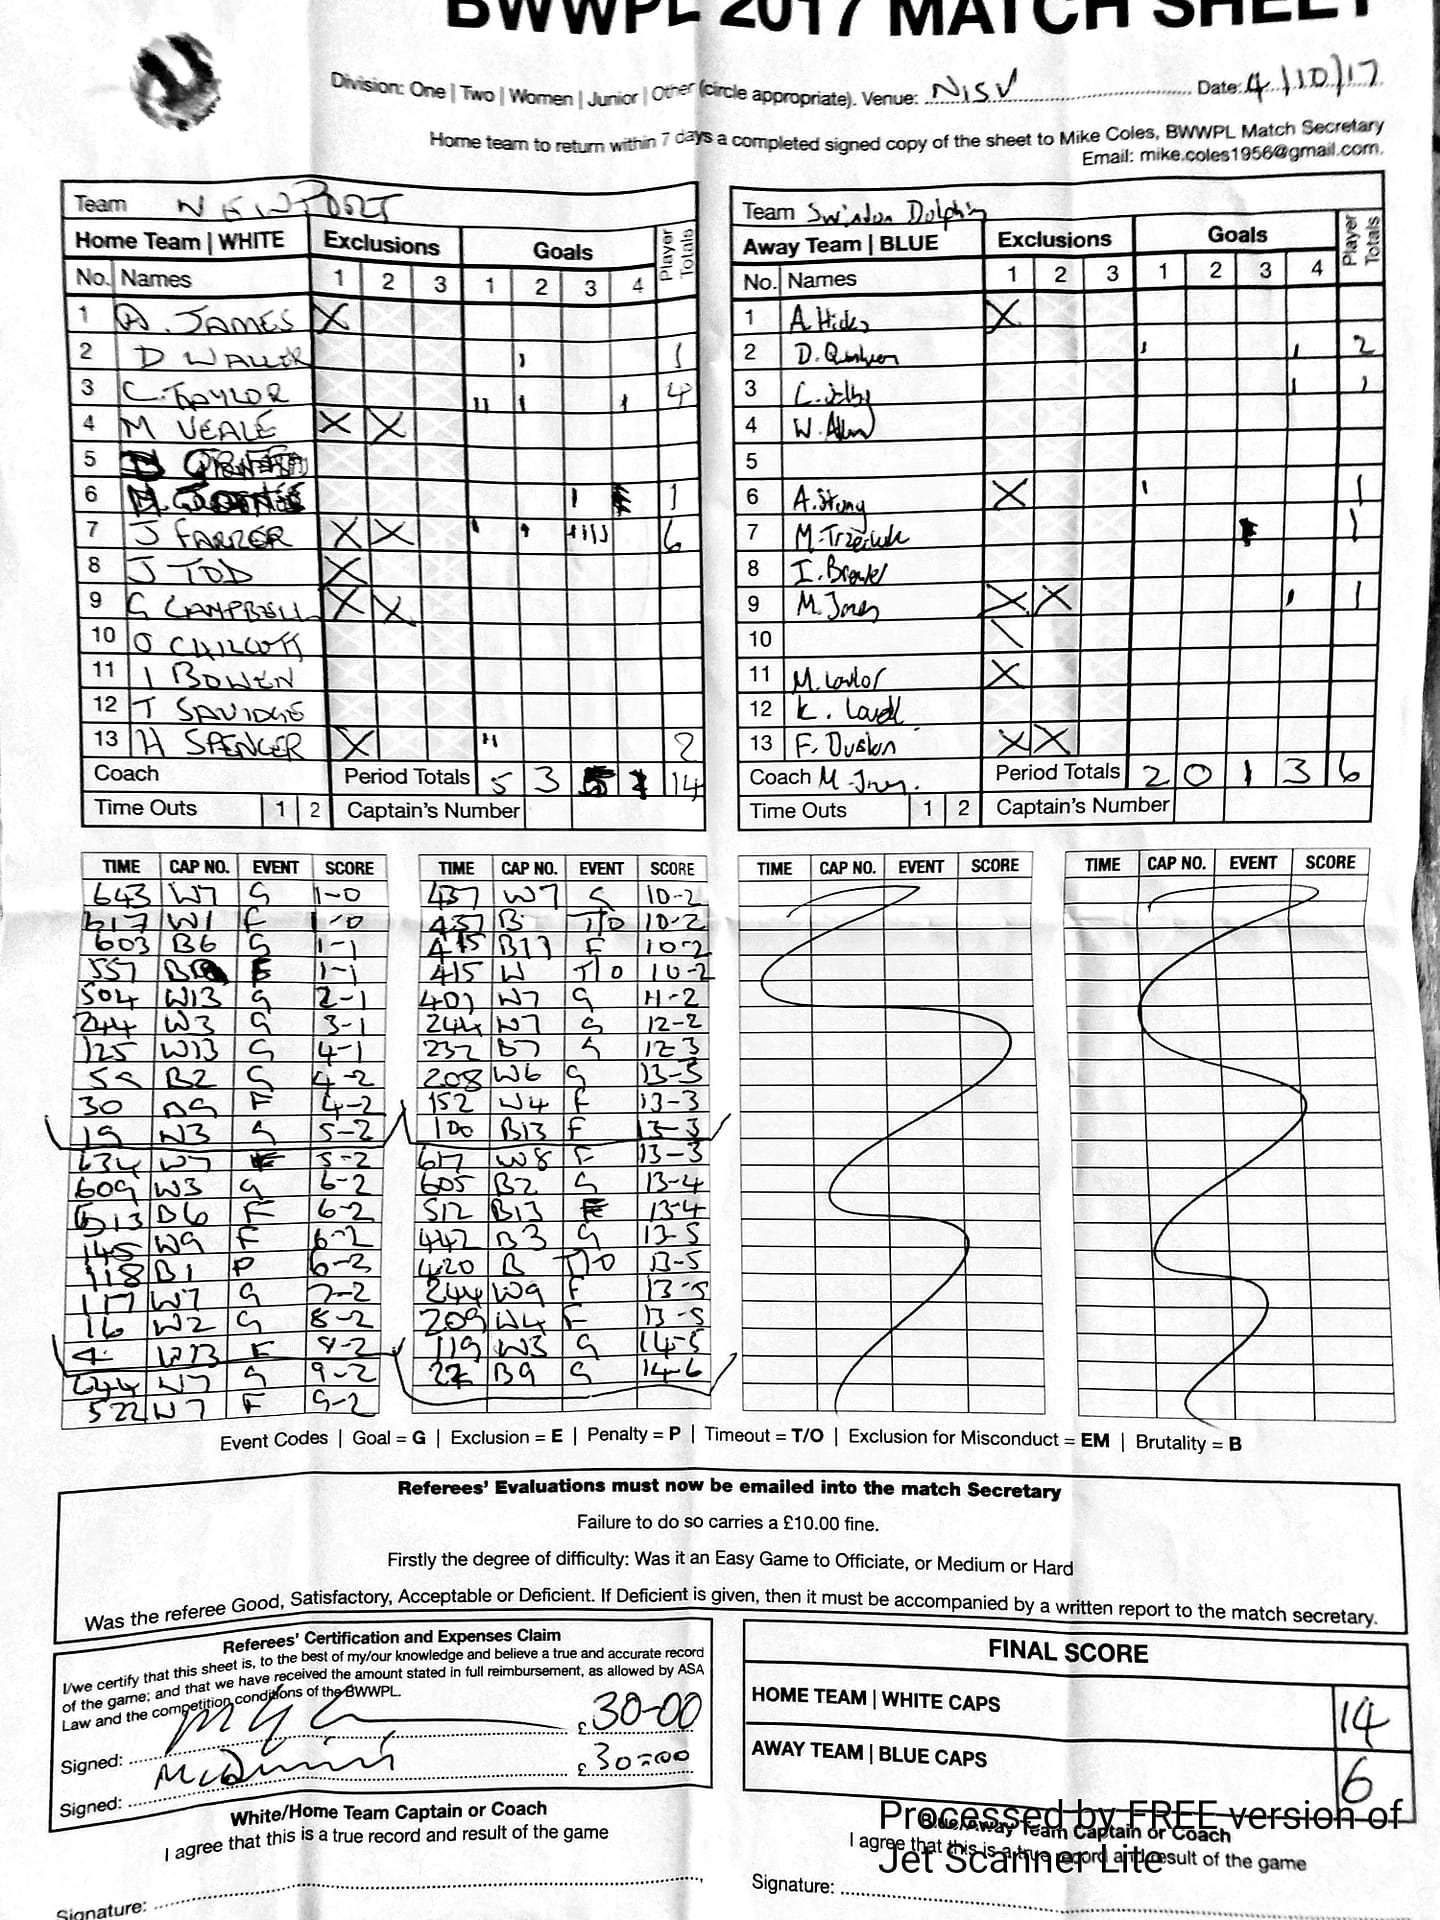 BWWPL 2017 MATCH SHEET
Division: One | Two | Women | Junior | Other (circle appropriate). Venue: NISV Date: 4/10/17
Home team to return within 7 days a completed signed copy of the sheet to Mike Coles, BWWPL Match Secretary
Email: mike.coles1956@gmail.com.
Team NEWPORT
Home Team | WHITE Exclusions Goals Player Totals
No. Names 1 2 3 1 2 3 4
1 A. JAMES X
2 D WALLER ı 1
3 C. TAYLOR ıı ı ı 4
4 M VEALE X X
5
6 ı 1
7 J FARRER X X ı ı ıııı 6
8 J TOD X
9 G CAMPBELL X X
10 O CHILCOTT
11 I BOWEN
12 T SAVIDGE
13 H SPENCER X ıı 2
Coach Period Totals 5 3 14
Time Outs 1 2 Captain's Number
Team Swindon Dolphin
Away Team | BLUE Exclusions Goals Player Totals
No. Names 1 2 3 1 2 3 4
1 A. Hicks X
2 D. ı ı 2
3 C. ı 1
4 W. Allen
5
6 A. Strong X ı 1
7 M. 1
8 I.
9 M. Jones X X ı 1
10 \
11 M. X
12 K.
13 F. X X
Coach M. Jones. Period Totals 2 0 1 3 6
Time Outs 1 2 Captain's Number
TIME CAP NO. EVENT SCORE
643 W7 G 1-0
617 W1 F 1-0
603 B6 G 1-1
557 1-1
504 W13 G 2-1
244 W3 G 3-1
125 W13 G 4-1
59 B2 G 4-2
30 B9 F 4-2
19 W3 G 5-2
634 W7 5-2
609 W3 G 6-2
513 B6 F 6-2
145 W9 F 6-2
118 B1 P 6-2
117 W7 G 7-2
16 W2 G 8-2
4 W13 F 8-2
644 W7 G 9-2
522 W7 F 9-2
TIME CAP NO. EVENT SCORE
437 W7 G 10-2
437 B T/O 10-2
415 B11 F 10-2
415 W T/O 10-2
401 W7 G 11-2
244 W7 G 12-2
232 B7 G 12-3
208 W6 G 13-3
152 W4 F 13-3
100 B13 F 13-3
617 W8 F 13-3
605 B2 G 13-4
512 B13 F 13-4
442 B3 G 13-5
420 B T/O 13-5
244 W9 F 13-5
209 W4 F 13-5
119 W3 G 14-5
22 B9 G 14-6
TIME CAP NO. EVENT SCORE
TIME CAP NO. EVENT SCORE
Event Codes | Goal = G | Exclusion = E | Penalty = P | Timeout = T/O | Exclusion for Misconduct = EM | Brutality = B
Referees' Evaluations must now be emailed into the match Secretary
Failure to do so carries a £10.00 fine.
Firstly the degree of difficulty: Was it an Easy Game to Officiate, or Medium or Hard
Was the referee Good, Satisfactory, Acceptable or Deficient. If Deficient is given, then it must be accompanied by a written report to the match secretary.
Referees' Certification and Expenses Claim
I/we certify that this sheet is, to the best of my/our knowledge and believe a true and accurate record
of the game; and that we have received the amount stated in full reimbursement, as allowed by ASA
Law and the competition conditions of the BWWPL.
Signed: £ 30-00
Signed: £ 30-00
White/Home Team Captain or Coach
I agree that this is a true record and result of the game
Signature:
FINAL SCORE
HOME TEAM | WHITE CAPS 14
AWAY TEAM | BLUE CAPS 6
Blue/Away Team Captain or Coach
I agree that this is a true record and result of the game
Signature:
Processed by FREE version of
Jet Scanner Lite